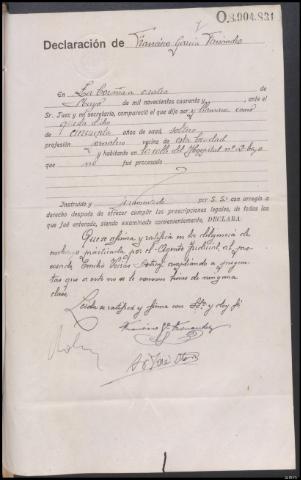 O.8.904.831
Declaración de Francisco García Fernández
En La Coruña a seis de
Mayo de mil novecientos cuarenta y , ante el
Sr. Juez y mi Secretario, compareció el que dijo ser y llamarse como
queda dicho
de cincuenta años de edad, soltero
profesión vecino de esta ciudad
y habitante en la calle del Hospital nº 2 bajo
que no fué procesado
Instruido y por S. Sª con arreglo a
derecho después de ofrecer cumplir las prescripciones legales, de todas las
que fué enterado, siendo examinado convenientemente, DECLARA:
Que se afirma y ratifica en la diligencia de
practicada por el Agente Judicial, al
Emilio a
tas que a este no se le conocen bienes de ninguna
clase.
Leida se ratifica y firma con Sª y doy fé
Francisco Gª Fernandez